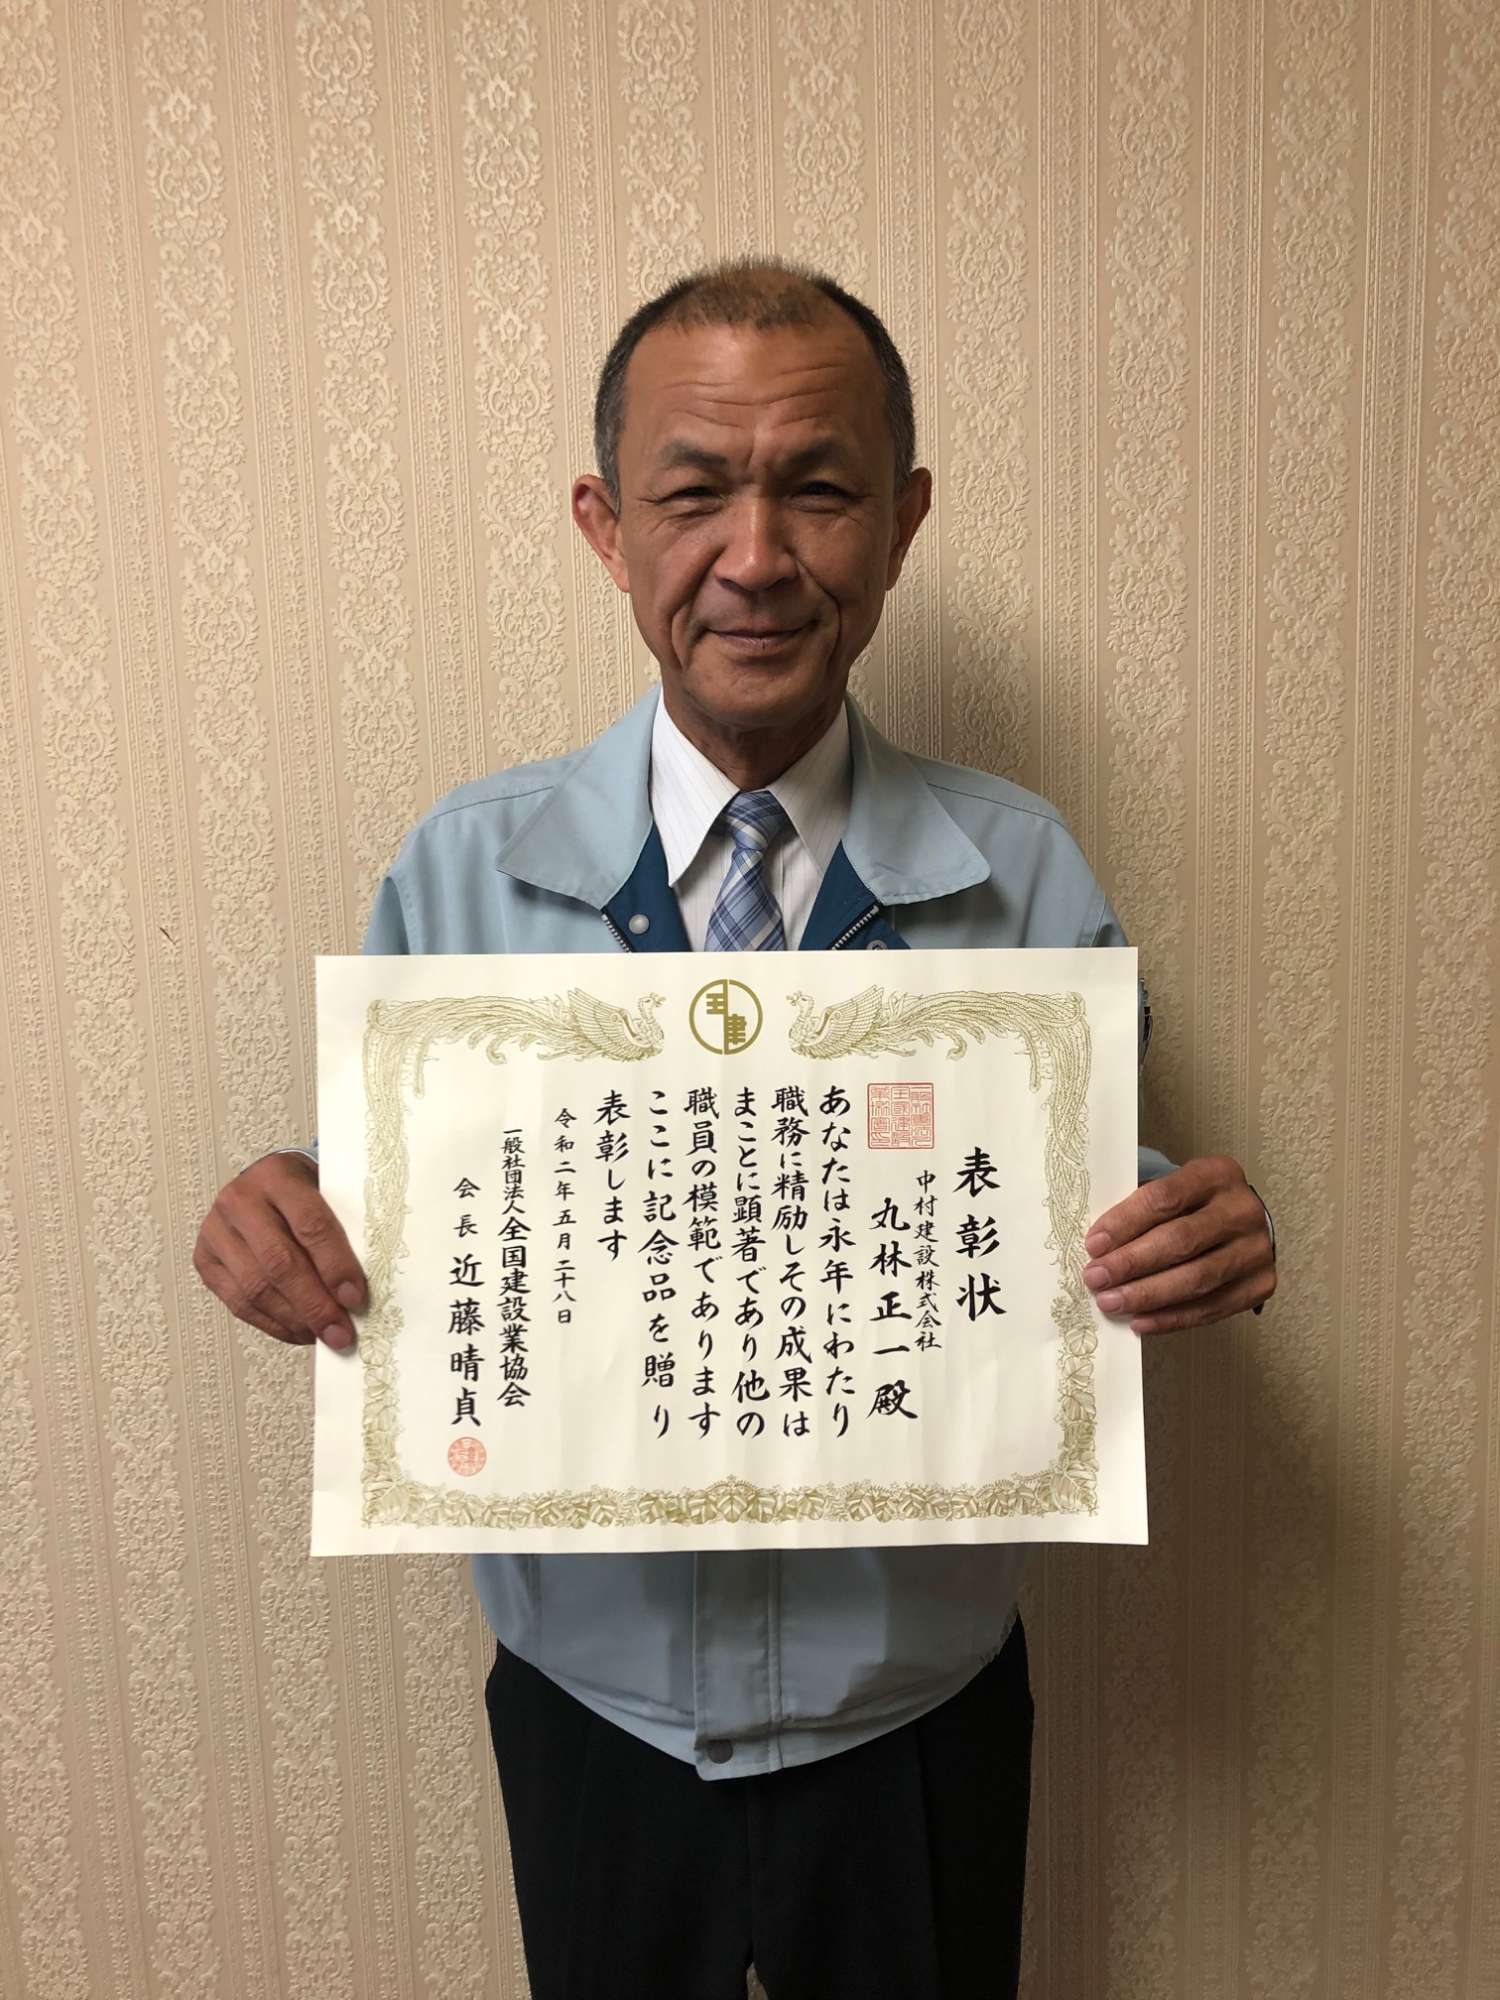 表彰状
中村建設株式会社
丸林正一殿
あなたは永年にわたり
職務に精励しその成果は
まことに顕著であり他の
職員の模範であります
ここに記念品を贈り
表彰します
令和二年五月二十八日
一般社団法人全国建設業協会
会長近藤晴貞